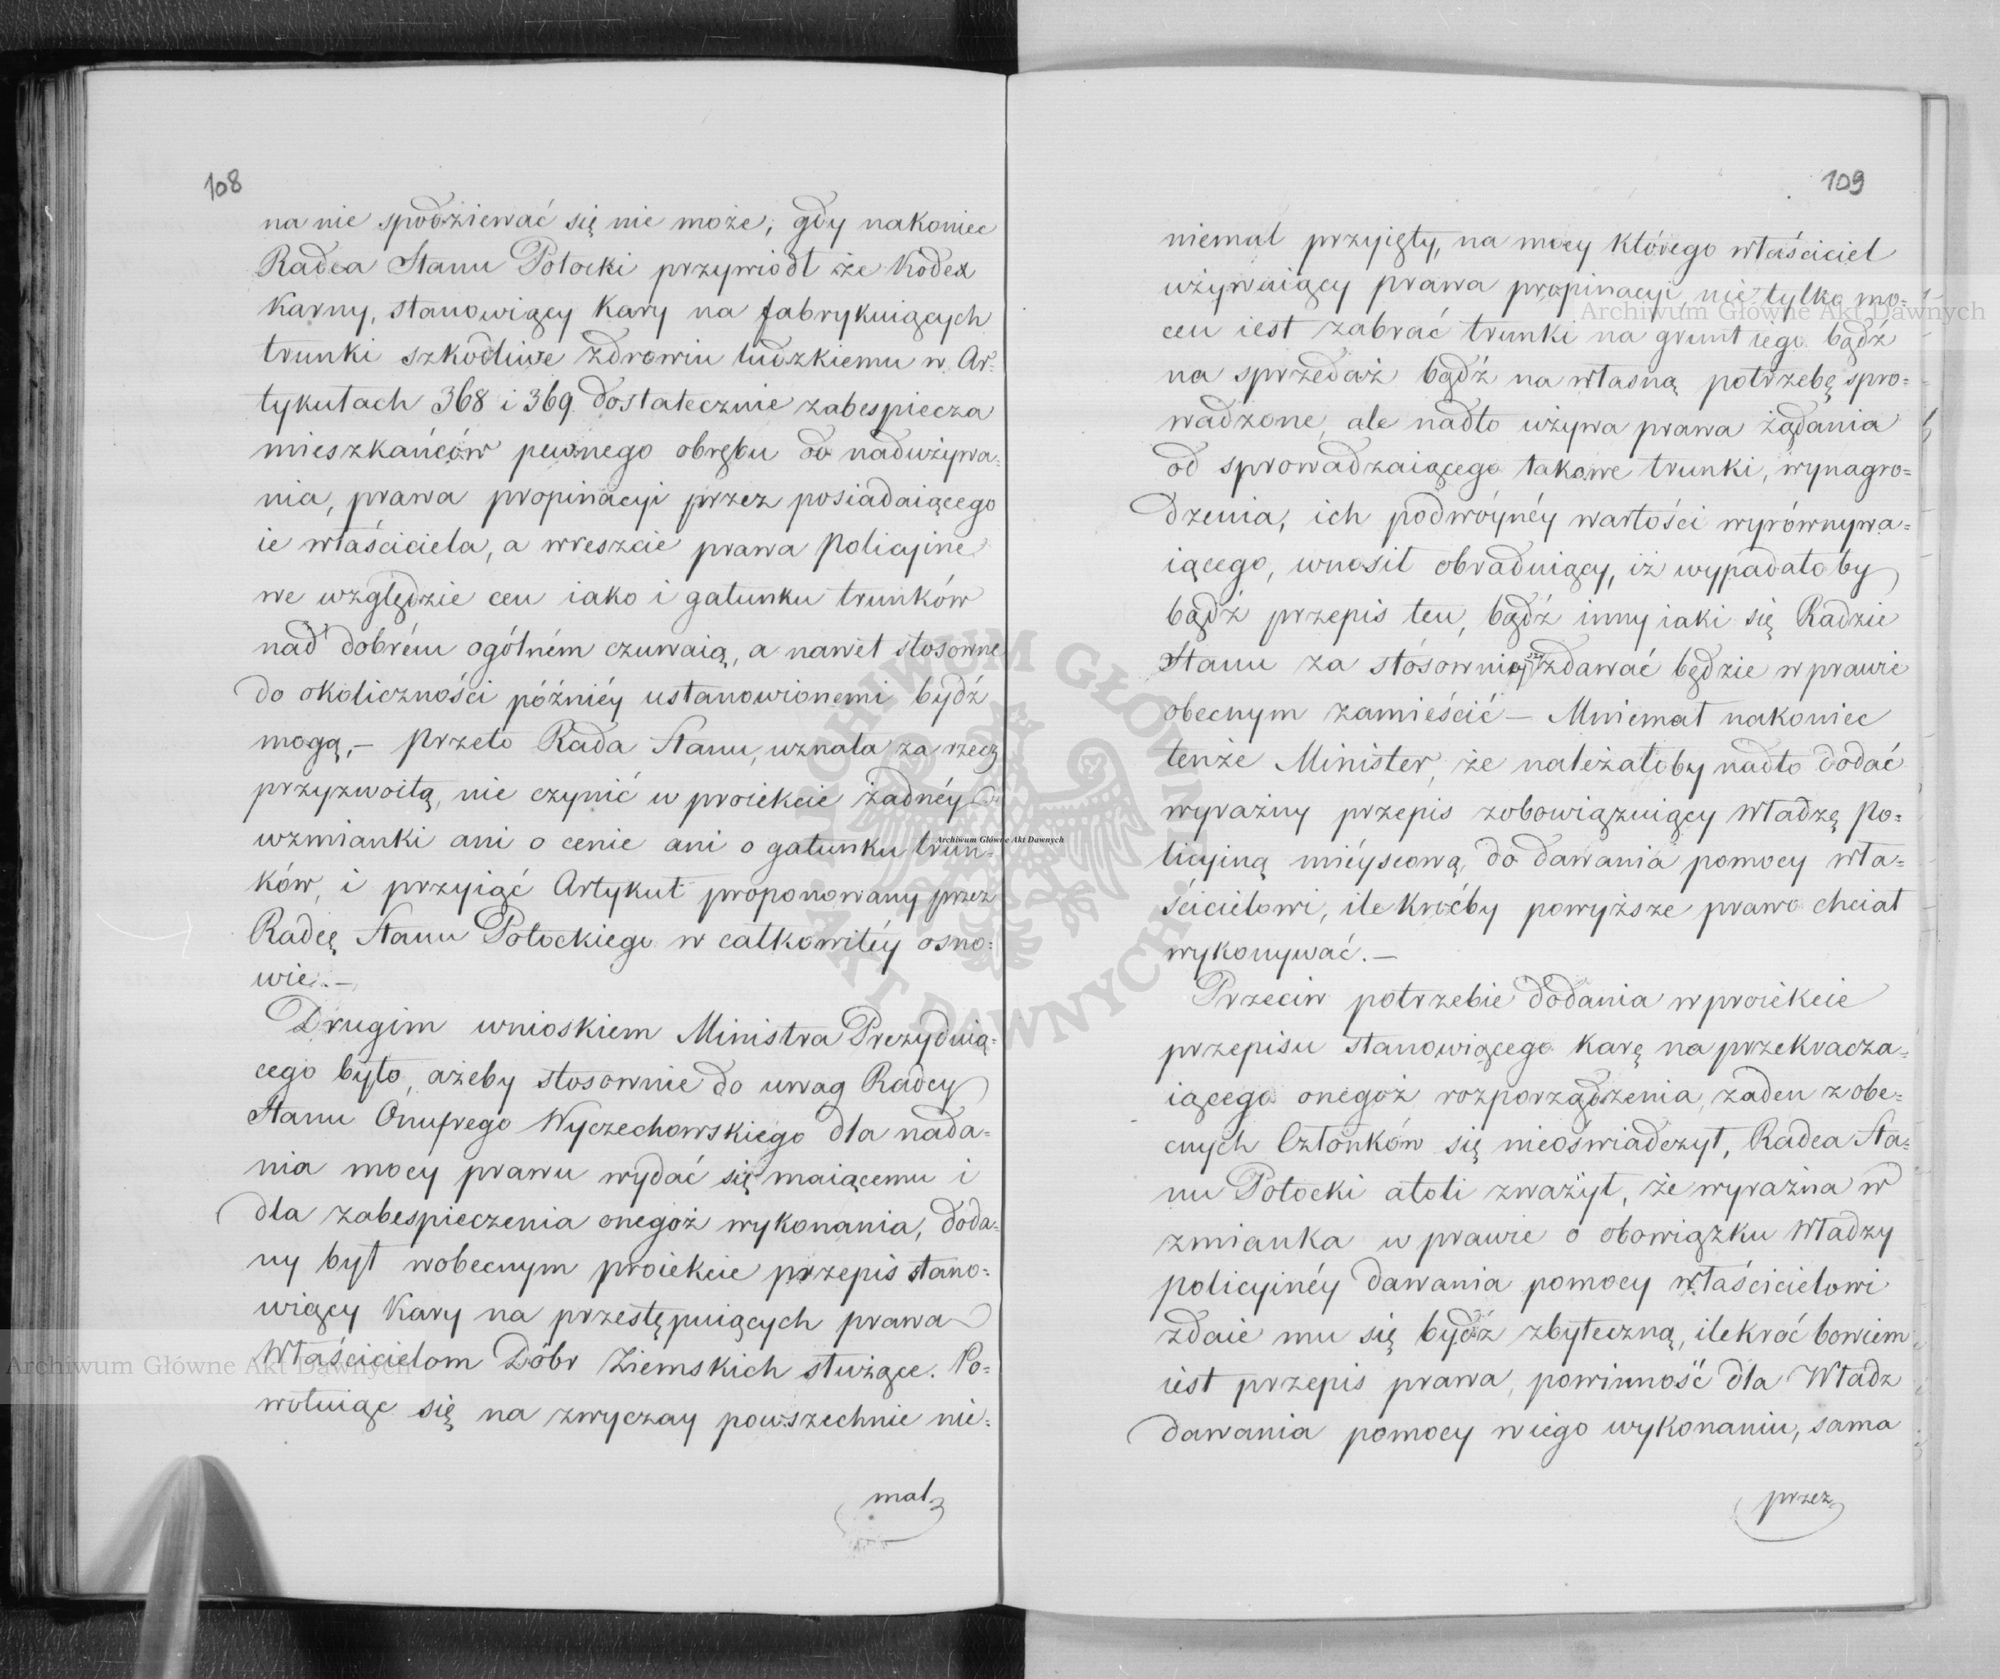 108
na nie spodziewać się nie może; gdy nakoniec
Radca Stanu Potocki przywiódł że Kodex
Karny, stanowiący kary na fabrykuiących
trunki szkodliwe zdrowiu ludzkiemu w Ar=
tykułach 368 i 369 dostatecznie zabespiecza
mieszkańców pewnego obrębu od nadużywa=
nia, prawa propinacyi przez posiadaiącego
ie właściciela, a wreszcie prawa policyine
we względzie cen iako i gatunku trunków
nad dobrém ogólném czuwaią, a nawet stosowne
do okoliczności późniéy ustanowionemi bydź
mogą, — przeto Rada Stanu, uznała za rzecz
przyzwoitą, nie czynić w proiekcie żadnéy
wzmianki ani o cenie ani o gatunku trun=
ków, i przyiąć Artykuł proponowany przez
Radcę Stanu Potockiego w całkowitéy osno=
wie. —
Drugim wnioskiem Ministra Prezyduią=
cego było, ażeby stosownie do uwag Radcy
Stanu Onufrego Wyczechowskiego dla nada=
nia mocy prawu wydać się maiącemu i
dla zabespieczenia onegoż wykonania, doda=
ny był wobecnym proiekcie przepis stano=
wiący kary na przestępuiących prawa
Właścicielom Dóbr Ziemskich służące. Po=
wołuiąc się na zwyczay powszechnie nie=
mal
109
niemal przyięty, na mocy którego właściciel
używaiący prawa propinacyi nie tylko mo=
cen iest zabrać trunki na grunt iego bądź
na sprzedaż bądź na własną potrzebę spro=
wadzone, ale nadto używa prawa żądania
od sprowadzaiącego takowe trunki, wynagro=
dzenia, ich podwóynéy wartości wyrównywa=
iącego, wnosił obraduiący, iż wypadałoby
bądź przepis ten, bądź inny iaki się Radzie
Stanu za stósownieyszy zdawać będzie w prawie
obecnym zamieścić — Mniemał nakoniec
tenże Minister, że należałoby nadto dodać
wyraźny przepis zobowiązuiący Władzę Po=
licyiną mieyscową do dawania pomocy wła=
ścicielowi, ile kroćby powyższe prawo chciał
wykonywać. —
Przeciw potrzebie dodania w proiekcie
przepisu stanowiącego karę na przekracza=
iącego onegoż rozporządzenia, żaden z obe=
cnych Członków się nieoświadczył, Radca Sta=
nu Potocki atoli zważył, że wyraźna w
zmianka w prawie o obowiązku Władzy
policyinéy dawania pomocy właścicielowi
zdaie mu się bydź zbyteczną, ilekroć bowiem
iest przepis prawa, powinność dla Władz
dawania pomocy w iego wykonaniu, sama
przez
Archiwum Główne Akt Dawnych
Archiwum Główne Akt Dawnych
Archiwum Główne Akt Dawnych
ARCHIWUM GŁÓWNE AKT DAWNYCH